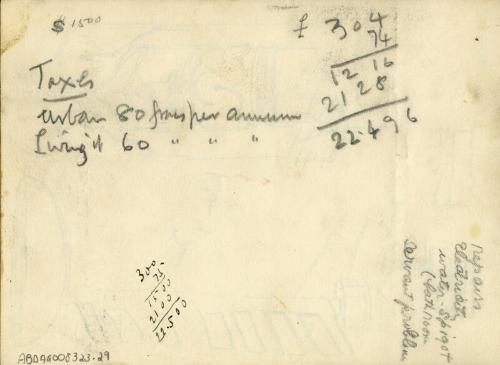 $ 1500
£ 304
74
12 16
21 28
22.496
Taxes
urban 80 frs per annum
Living it 60 " " "
300
75
1500
2100
22.500
repairs
Electricity
water-spigot
(bathroom
servant problem
ABDAG008323.29